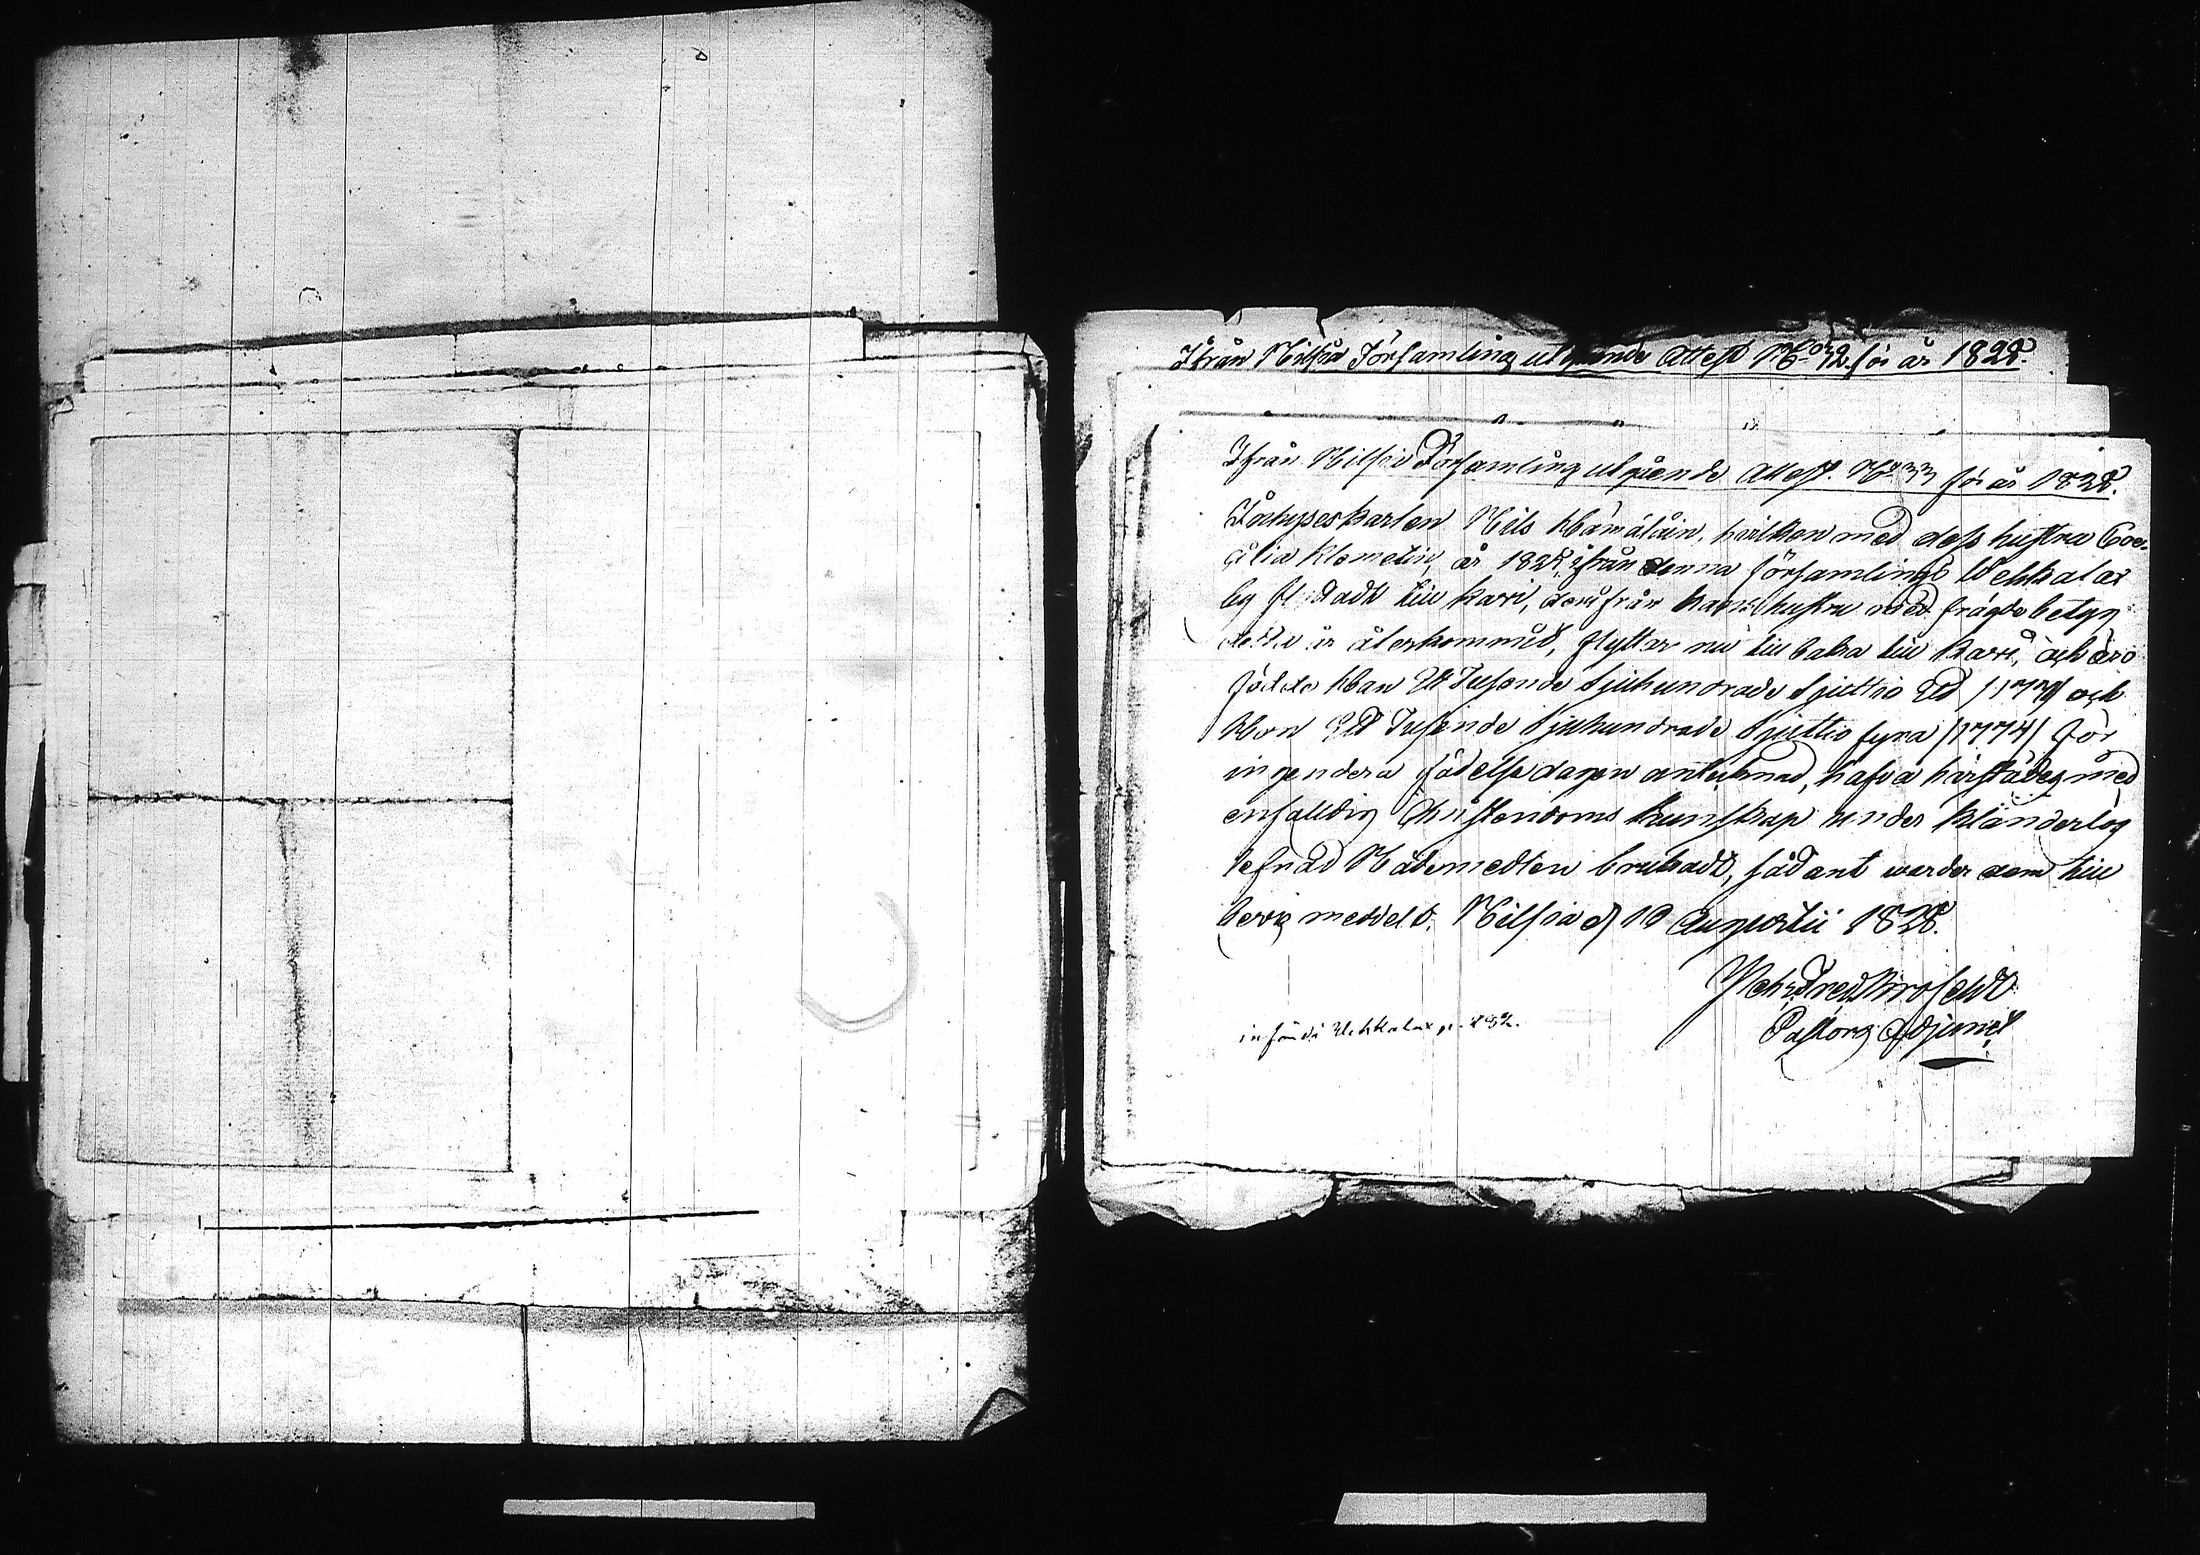 Ifrån Nilsiä Församling utgående Attest No 32 för år 1828.
Ifrån Nilsiä Församling utgående Attest. No 33 för år 1828.
Inhyseskarlen Nils Hämäläin, hvilken med dess hustru Coe-
cilia Klemetin, år 1828, ifrån denna församlings Wehkalax
by flyttadt till Kavi, derifrån hans hustru med frägdebetyg
detta år återkommit, flyttar nu tillbaka till Kavi, och äro
födde Han Ett Tusende Sjuhundrade Sjuttio Ett /1771/ och
Hon Ett Tusende Sjuhundrade Sjuttio fyra /1774/ för
ingendera födelse dagen antecknad, hafva härstädes med
enfalldig Christendoms kunskap under klanderlös
lefnad Nådemedlen brukadt, sådant warder dem till
bevis meddelt. Nilsiä d 10 Augusti 1828.
Pehr Fred
Pastors Adjunct
införd i Wehkalax p.